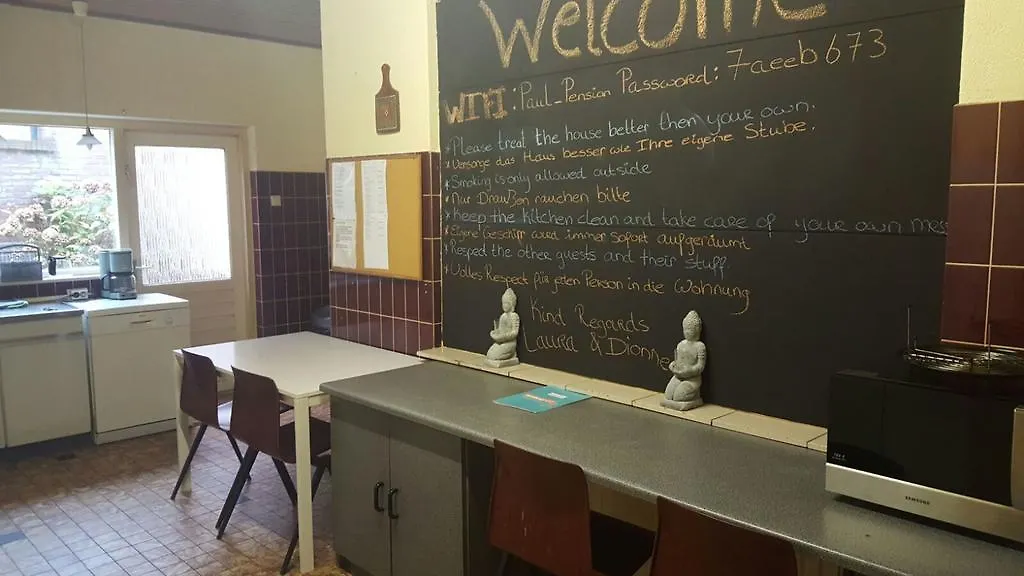 Welcome
WIFI: Paul_Pension Password: 7aeeb673
*Please treat the house better then your own.
*Versorge das Haus besser wie Ihre eigene Stube.
*Smoking is only allowed outside
*Nur Draußen rauchen bitte
*keep the kitchen clean and take care of your own mes
*Eigene Geschirr wird immer sofort aufgeräumt
*Respect the other guests and their stuff
*Volles Respect für jeden Person in die Wohnung
Kind Regards
Laura & Dionne
SAMSUNG